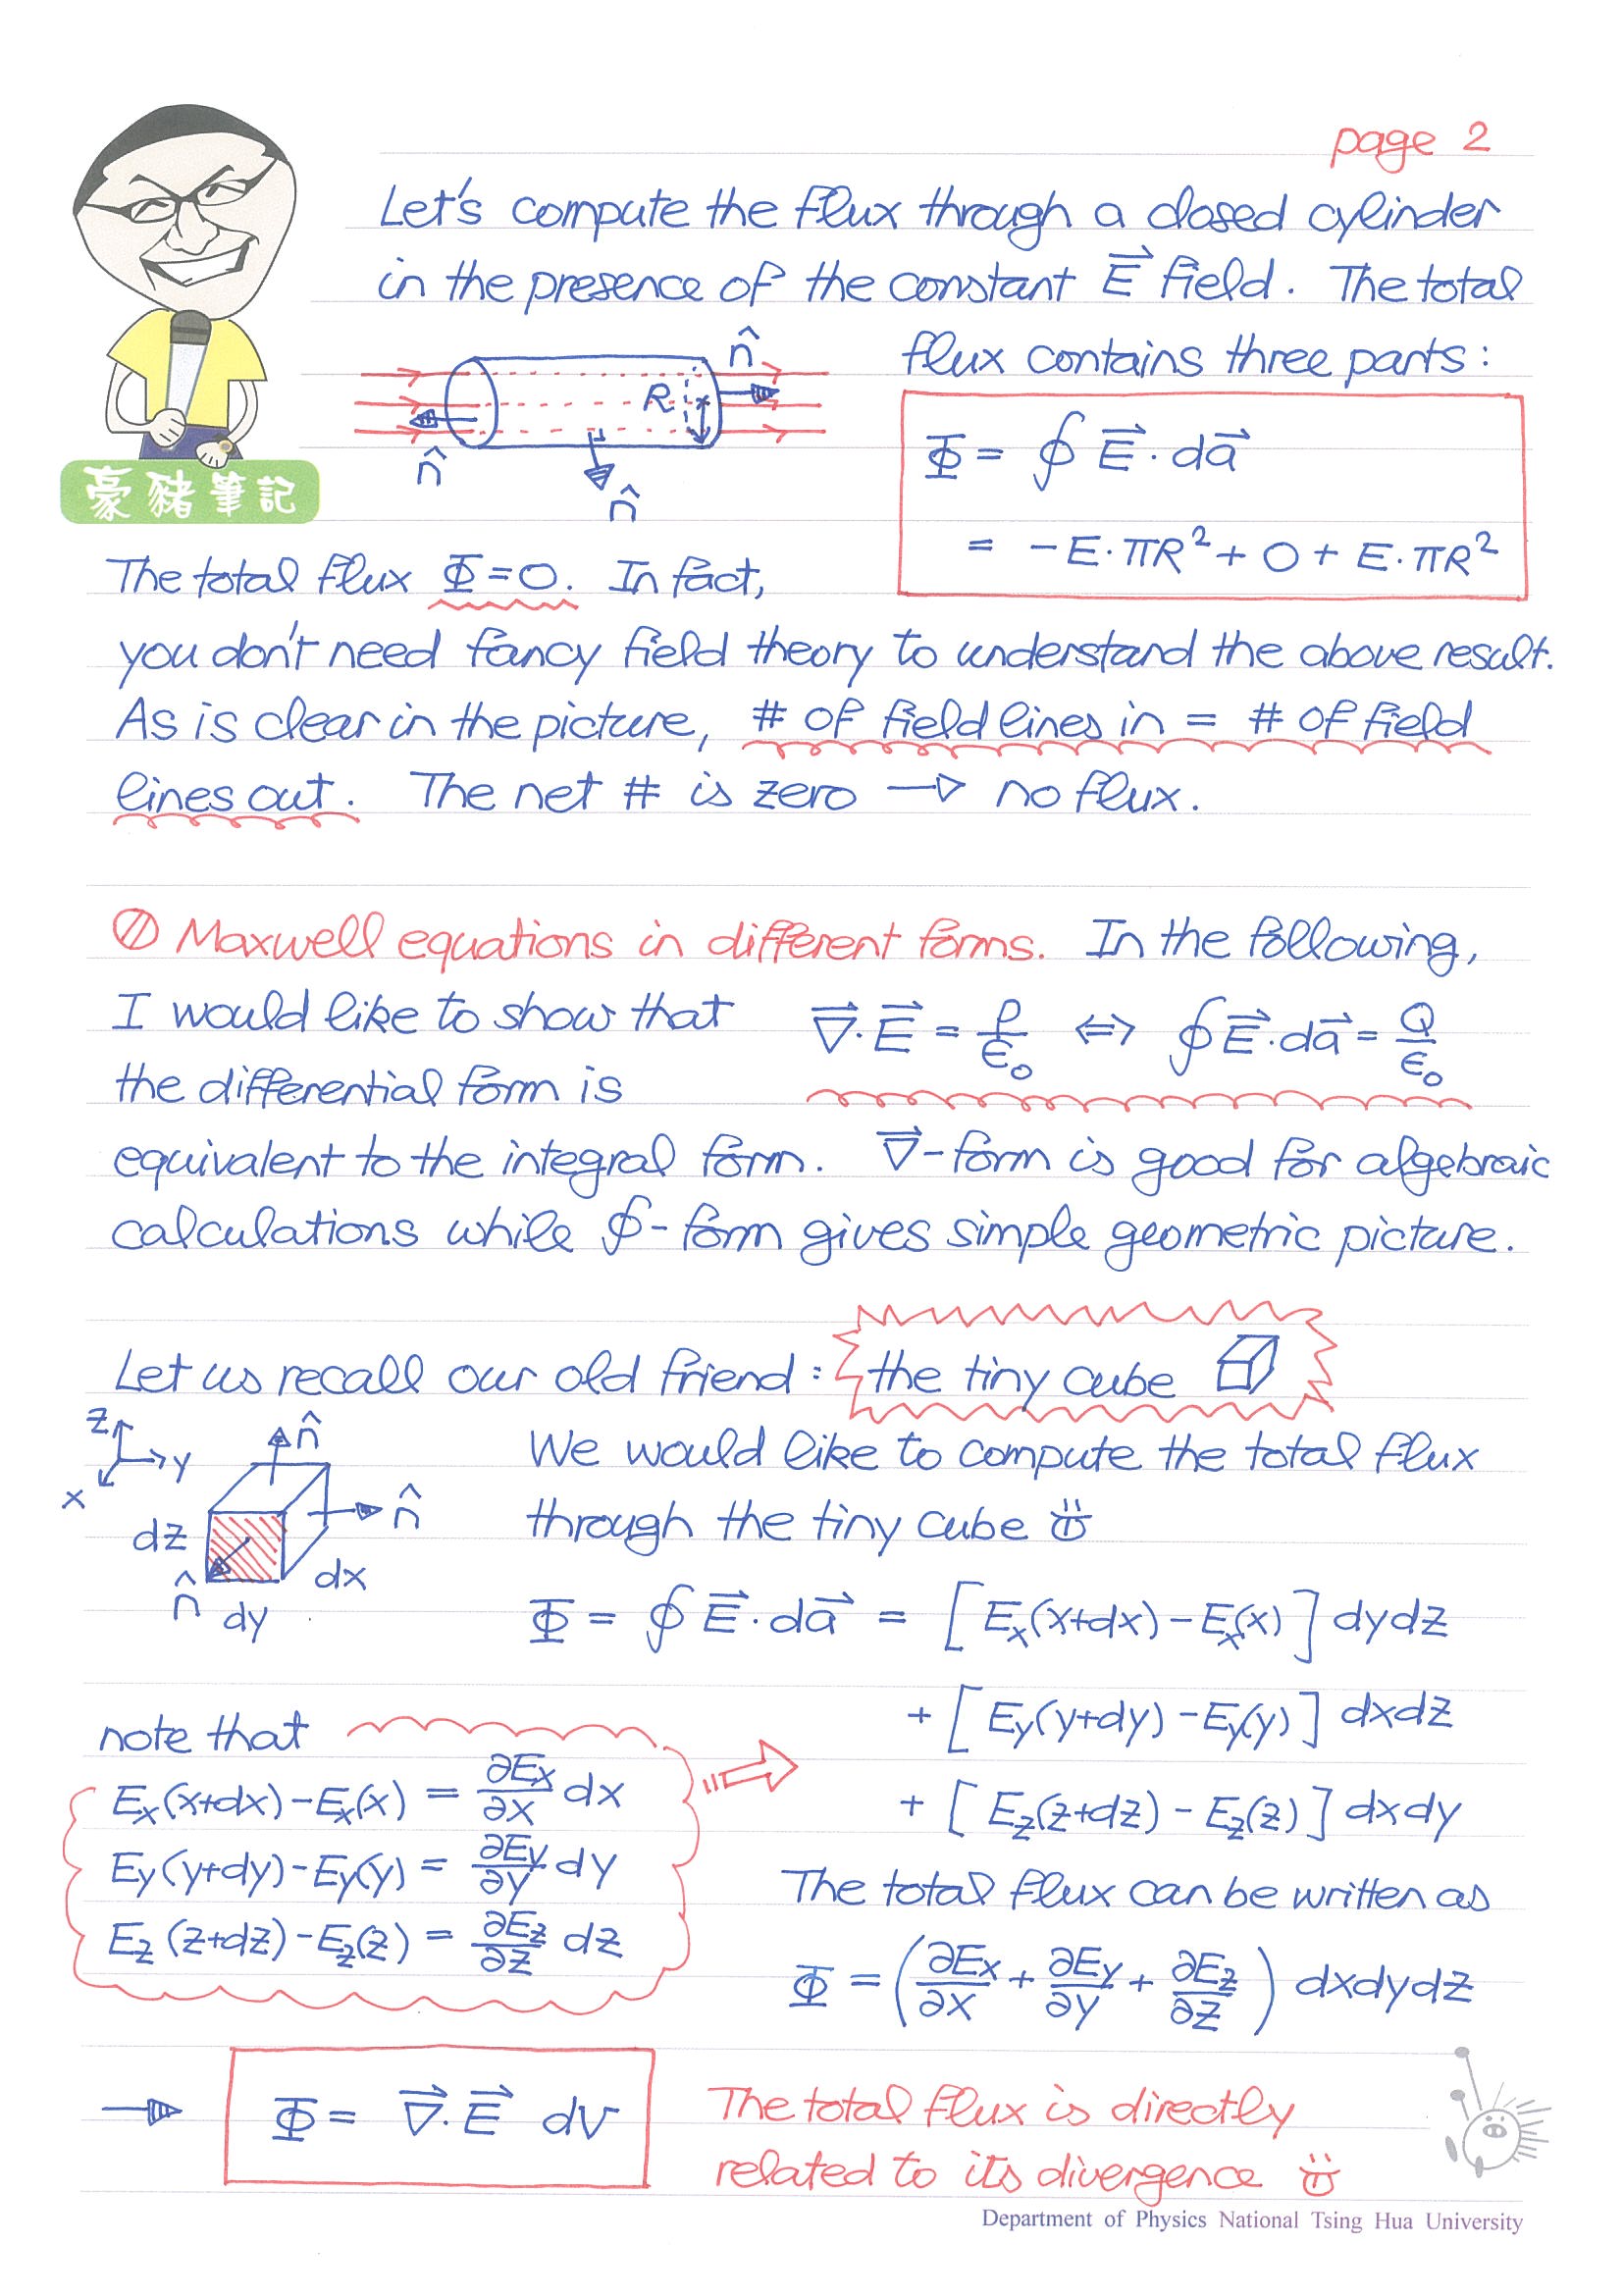 page 2
Let's compute the flux through a closed cylinder
in the presence of the constant E⃗ field. The total
flux contains three parts:
n̂
R
n̂
n̂
豪豬筆記
Φ = ∮ E⃗·da⃗
= -E·πR² + 0 + E·πR²
The total flux Φ=0. In fact,
you don't need fancy field theory to understand the above result.
As is clear in the picture, # of field lines in = # of field
lines out. The net # is zero → no flux.
Maxwell equations in different forms. In the following,
I would like to show that
∇⃗·E⃗ = ρ/ε₀ ⇔ ∮E⃗·da⃗ = Q/ε₀
the differential form is
equivalent to the integral form. ∇⃗-form is good for algebraic
calculations while ∮-form gives simple geometric picture.
Let us recall our old friend: the tiny cube
z
y
x
n̂
n̂
n̂
dz
dx
dy
We would like to compute the total flux
through the tiny cube
Φ = ∮ E⃗·da⃗ = [Eₓ(x+dx) - Eₓ(x)] dydz
+ [Ey(y+dy) - Ey(y)] dxdz
+ [Ez(z+dz) - Ez(z)] dxdy
note that
Eₓ(x+dx) - Eₓ(x) = ∂Ex/∂x dx
Ey(y+dy) - Ey(y) = ∂Ey/∂y dy
Ez(z+dz) - Ez(z) = ∂Ez/∂z dz
The total flux can be written as
Φ = (∂Ex/∂x + ∂Ey/∂y + ∂Ez/∂z) dxdydz
→ Φ = ∇⃗·E⃗ dV
The total flux is directly
related to its divergence
Department of Physics National Tsing Hua University